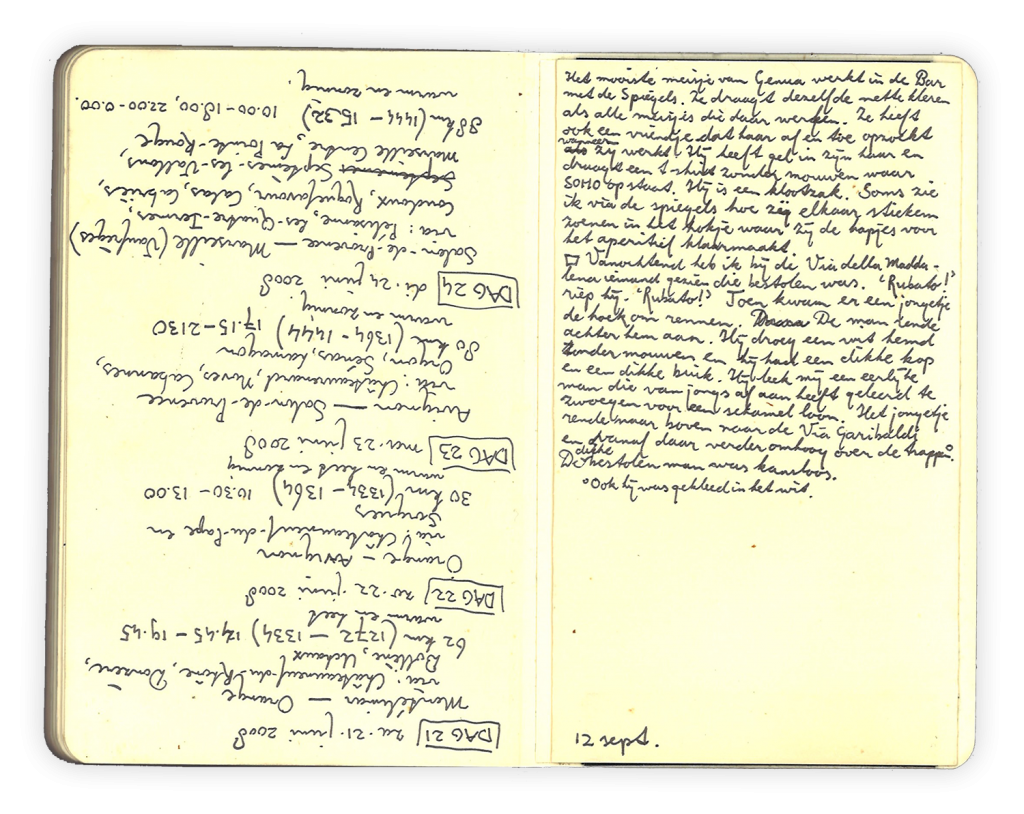 DAG 21 za. 21 juni 2008
Montélimar – Orange
via: Châteauneuf-du-Rhône, Donzère,
Bollène, Uchaux
62 km (1272 – 1334) 14.45 – 19.45
warm en heet
DAG 22 zo. 22 juni 2008
Orange – Avignon
via: Châteauneuf-du-Pape en
Sorgues
30 km (1334 – 1364) 10.30 – 13.00
warm en heet en zonnig
DAG 23 ma. 23 juni 2008
Avignon – Salon-de-Provence
via: Châteaurenard, Noves, Cabannes,
Orgon, Sénas, Lamanon
80 km (1364 – 1444) 17.15 – 2130
warm en zonnig
DAG 24 di. 24 juni 2008
Salon-de-Provence – Marseille (Vaufrèges)
via: Pélissanne, les-Quatre-Termes,
Coudoux, Roquefavour, Calas, Cabriès,
Septemes Septèmes-les-Vallons,
Marseille Centre, La Pointe-Rouge
88 km (1444 – 1532) 10.00 – 18.00, 22.00 – 0.00.
warm en zonnig.
Het mooiste meisje van Genua werkt in de Bar
met de Spiegels. Ze draagt dezelfde nette kleren
als alle meisjes die daar werken. Ze heeft
ook een vriendje dat haar af en toe opzoekt
wanneer
als zij werkt. Hij heeft gel in zijn haar en
draagt een t-shirt zonder mouwen waar
SOHO op staat. Hij is een klootzak. Soms zie
ik via de spiegels hoe zij elkaar stiekem
zoenen in het hokje waar zij de hapjes voor
het aperitief klaarmaakt.
Vanochtend heb ik bij de Via della Madda-
lena iemand gezien die bestolen was. ‘Rubato!’
riep hij. ‘Rubato!’ Toen kwam er een jongetje
de hoek om rennen. De man rende
achter hem aan. Hij droeg een wit hemd
zonder mouwen en hij had een dikke kop
en een dikke buik. Hij leek mij een eerlijke
man die van jongs af aan heeft geleerd te
zwoegen voor een schamel loon. Het jongetje
rende naar boven naar de Via Garibaldi
en vanaf daar verder omhoog over de trappen.
dikke
De bestolen man was kansloos.
°Ook hij was gekleed in het wit.
12 sept.